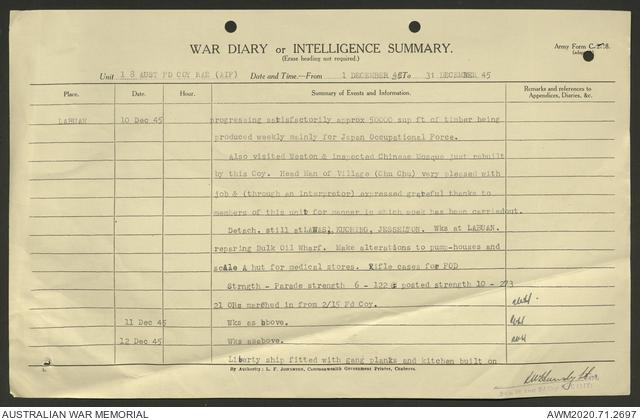 WAR DIARY or INTELLIGENCE SUMMARY.
(Erase heading not required.)
Army Form C.2118.
Unit 18 AUST FD COY RAE (AIF) Date and Time.—From 1 DECEMBER 45 To 31 DECEMBER 45
Place. Date. Hour. Summary of Events and Information. Remarks and references to Appendices, Diaries, &c.
LABUAN 10 Dec 45 progressing satisfactorily approx 50000 sup ft of timber being
produced weekly mainly for Japan Occupational Force.
Also visited Weston & inspected Chinese Mosque just rebuilt
by this Coy. Head Man of Village (Chu Chu) very pleased with
job & (through an interpretor) expressed grateful thanks to
members of this unit for manner in which work has been carriedout.
Detach. still at LAWAS, KUCHING, JESSELTON. Wks at LABUAN.
repairing Bulk Oil Wharf. Make alterations to pump-houses and
scale A hut for medical stores. Rifle cases for FOD
Strngth - Parade strength 6 - 122 & posted strength 10 - 273
21 ORs marched in from 2/15 Fd Coy.
11 Dec 45 Wks as above.
12 Dec 45 Wks asabove.
Liberty ship fitted with gang planks and kitchen built on
By Authority: L. F. Johnston, Commonwealth Government Printer, Canberra.
AUSTRALIAN WAR MEMORIAL
AWM2020.71.2697